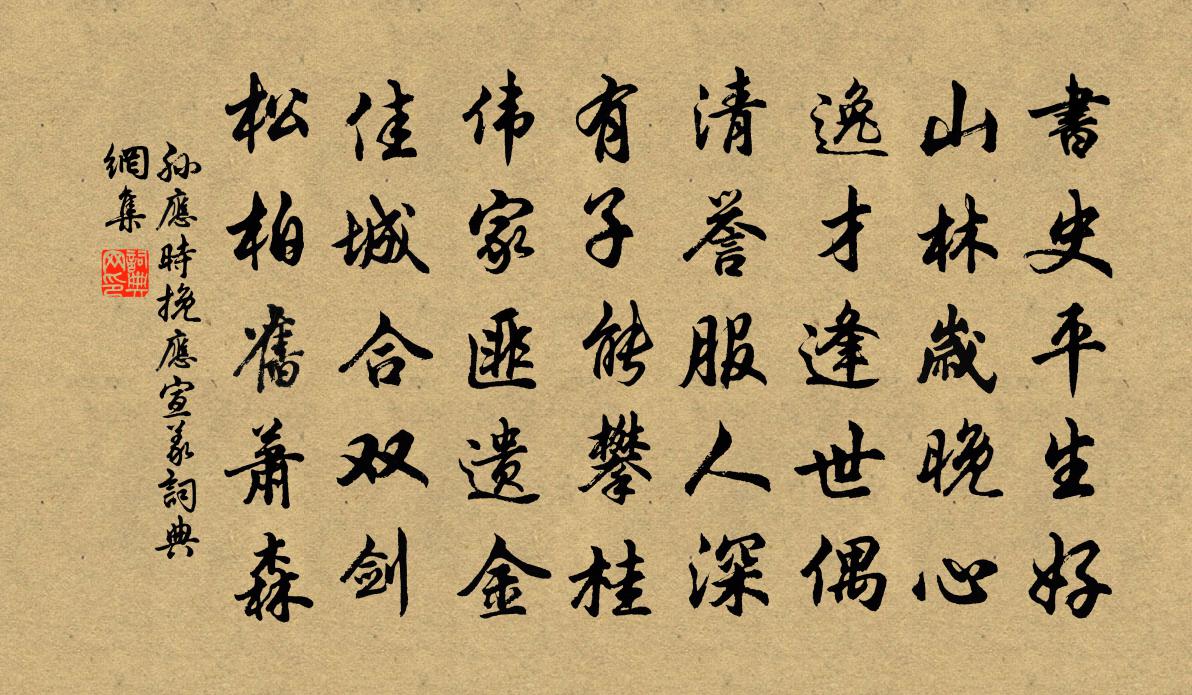 書史平生好
山林歲晚心
逸才逢世偶
清誉服人深
有子能攀桂
伟家匪遗金
佳城合双剑
松柏舊蕭森
孫應時挽應宣義詞典
網集
詞典
网印